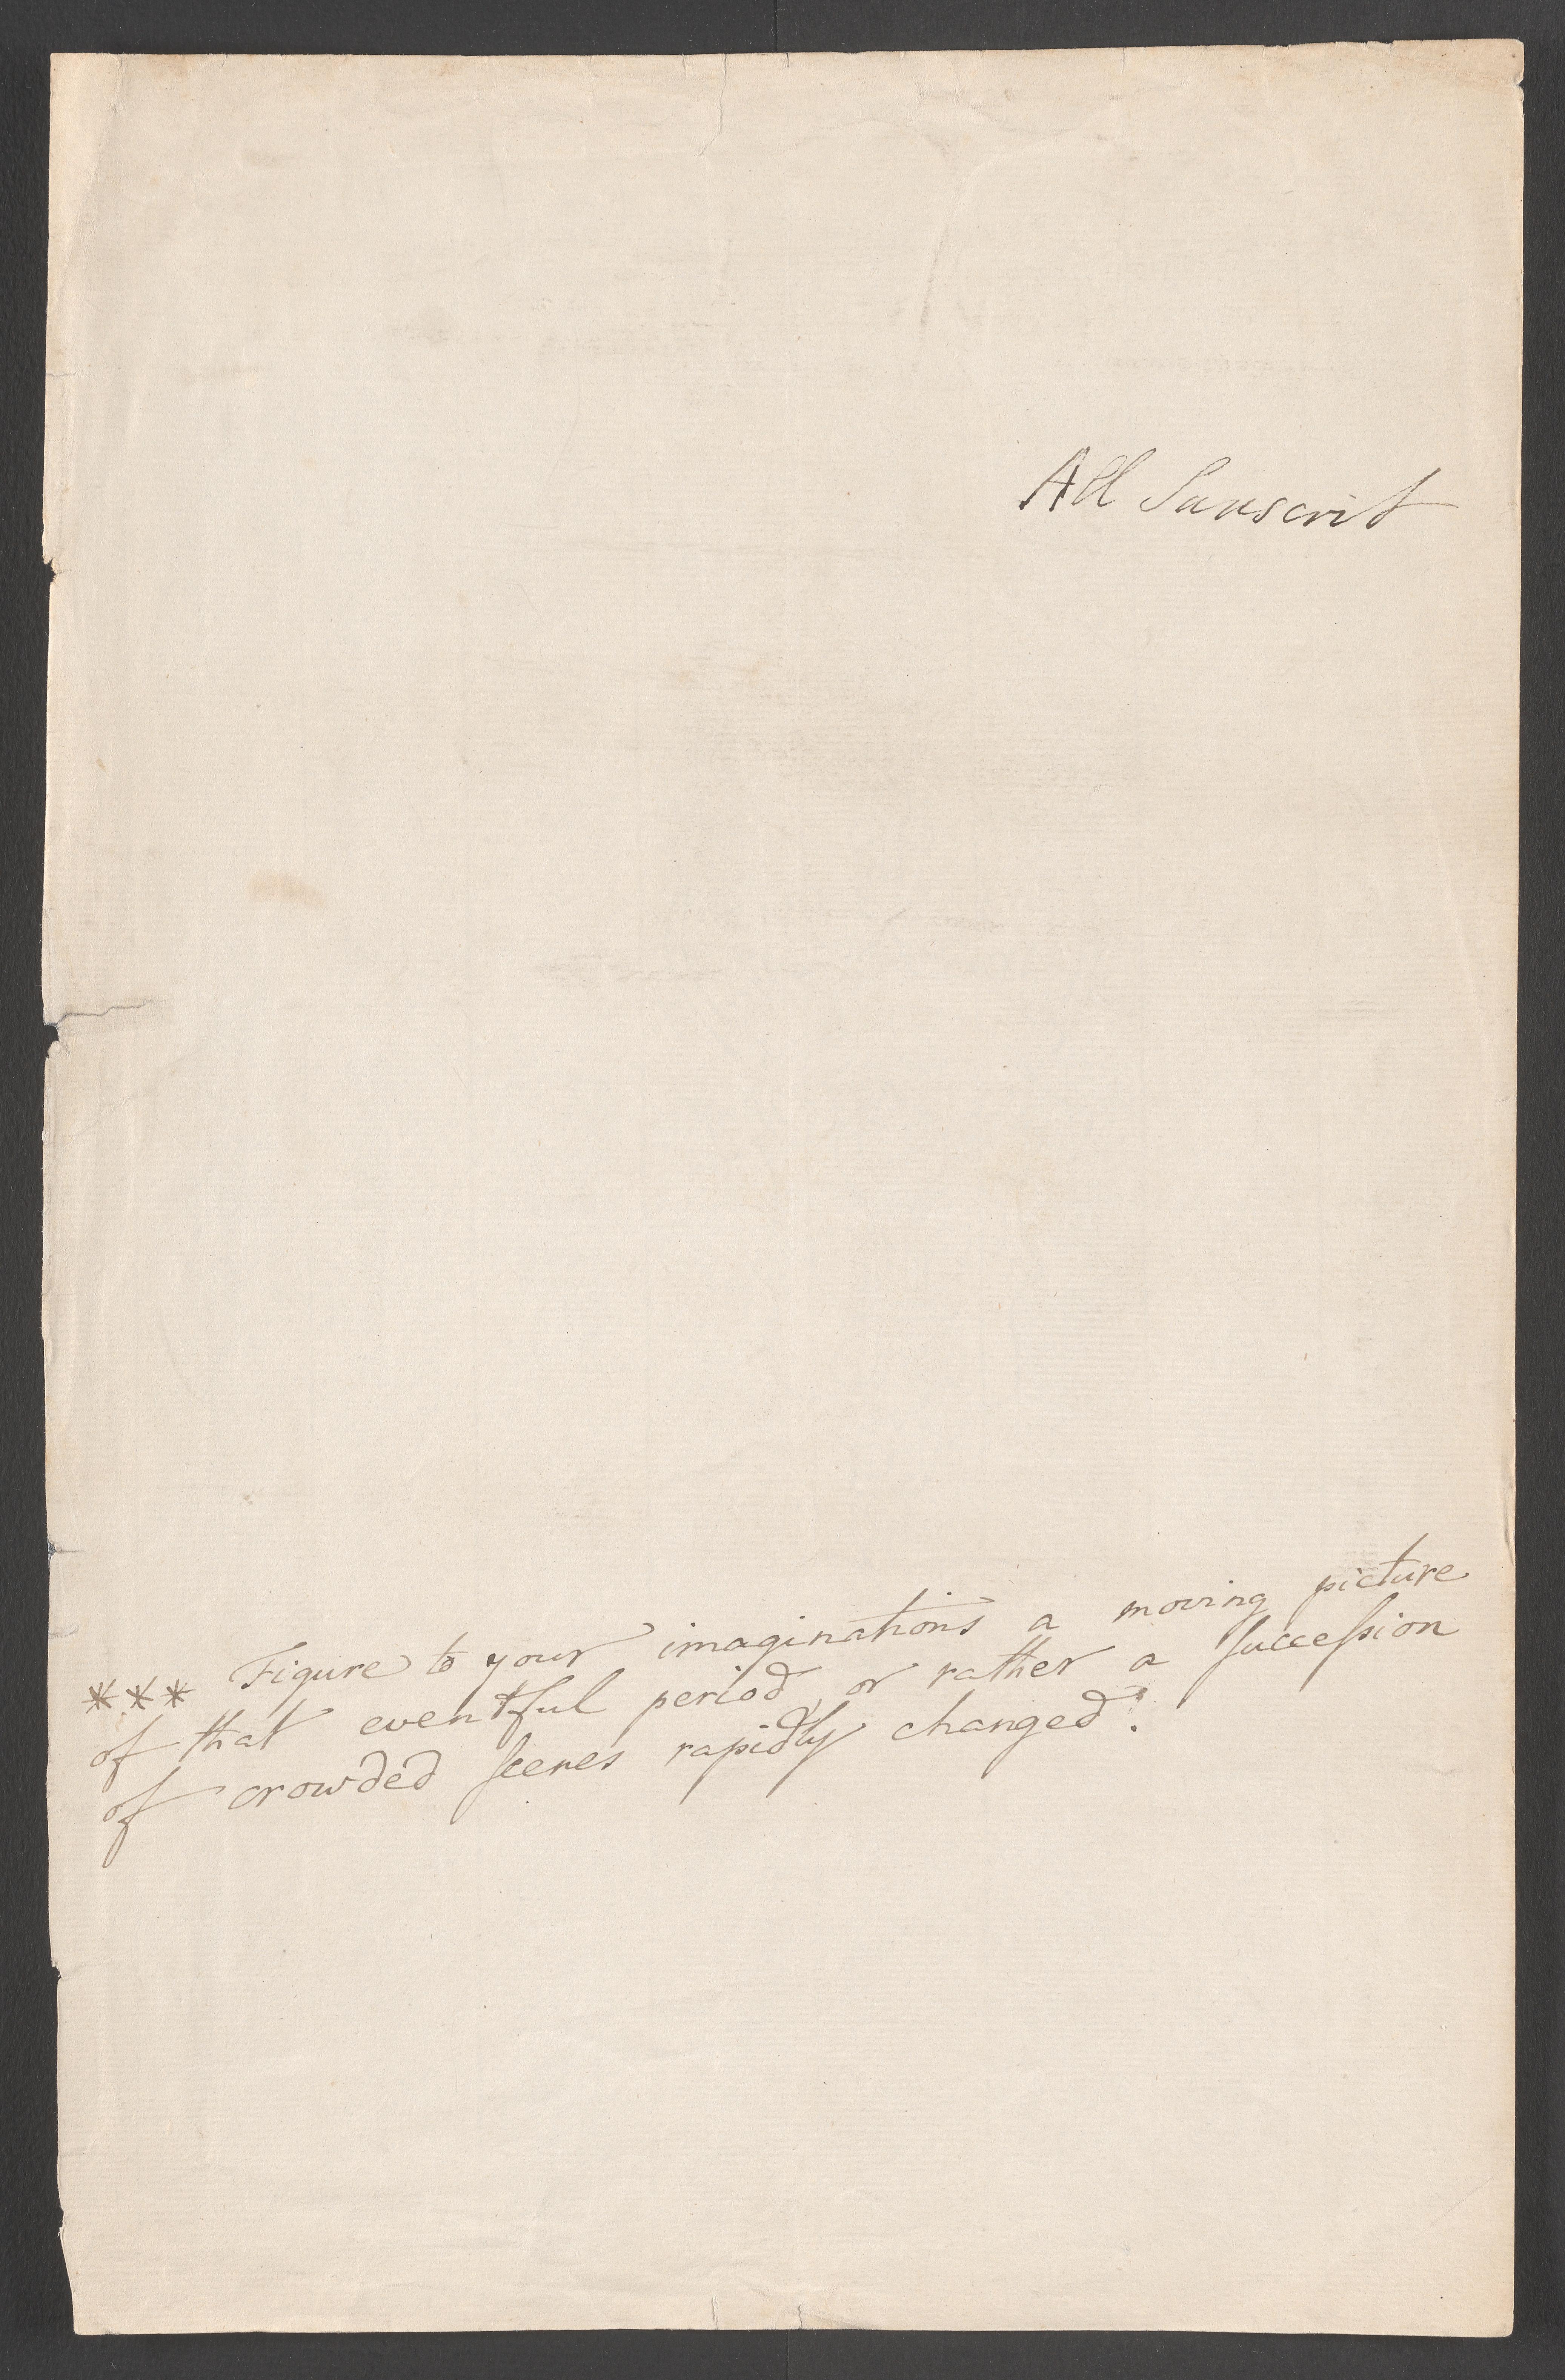 All Sanscrit
*** Figure to your imaginations a moving picture
of that eventful period, or rather a ſucceſsion
of crowded ſcenes rapidly changed!